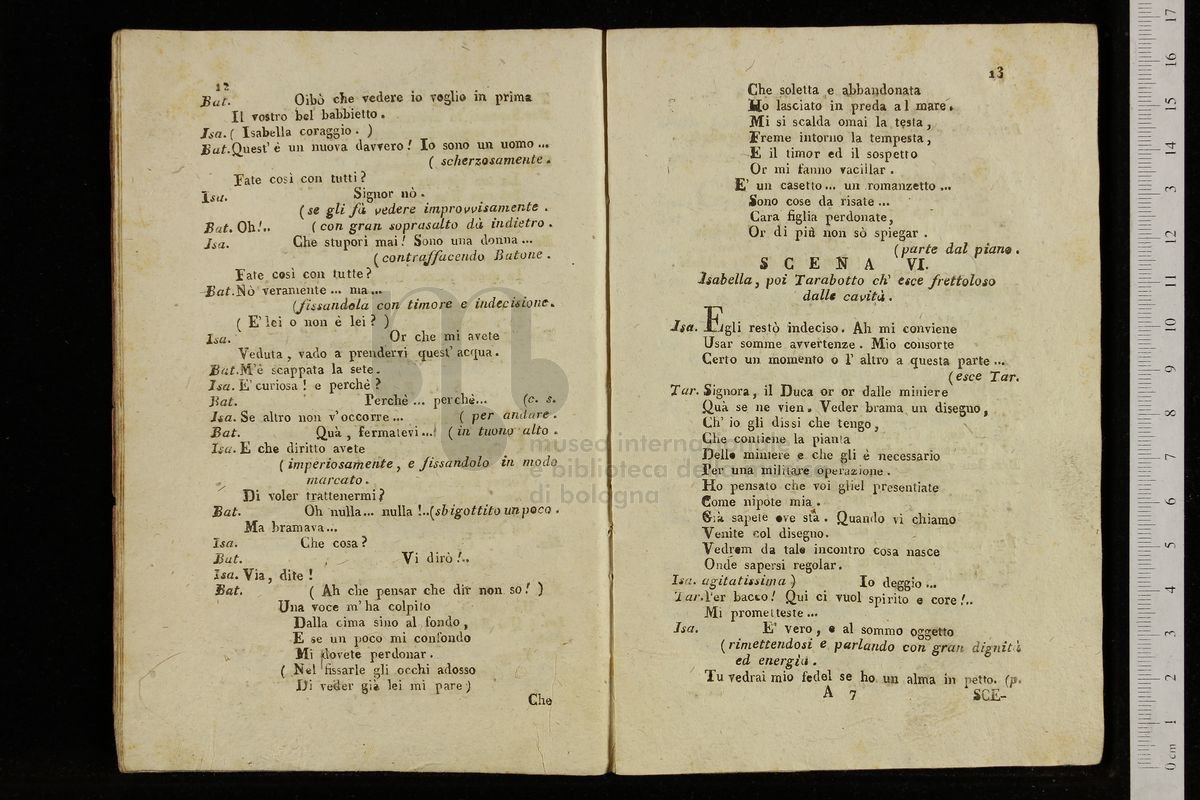 12
Bat. Oibò che vedere io voglio in prima
Il vostro bel babbietto.
Isa. ( Isabella coraggio. )
Bat. Quest' è un nuova davvero! Io sono un uomo ...
( scherzosamente.
Fate così con tutti?
Isa. Signor nò.
(se gli fà vedere improvvisamente.
Bat. Oh!.. (con gran soprasalto dà indietro.
Isa. Che stupori mai! Sono una donna ...
(contraffacendo Batone.
Fate così con tutte?
Bat. Nò veramente ... ma ...
(fissandola con timore e indecisione.
( E' lei o non è lei? )
Isa. Or che mi avete
Veduta, vado a prendervi quest' acqua.
Bat. M'è scappata la sete.
Isa. E' curiosa! e perchè?
Bat. Perchè ... perchè... (c. s.
Isa. Se altro non v'occorre ... ( per andare.
Bat. Quà, fermatevi ...! (in tuono alto.
Isa. E che diritto avete
( imperiosamente, e fissandolo in modo
marcato.
Di voler trattenermi?
Bat. Oh nulla... nulla!..(sbigottito un poco.
Ma bramava...
Isa. Che cosa?
Bat. Vi dirò!..
Isa. Via, dite!
Bat. ( Ah che pensar che dir non so! )
Una voce m'ha colpito
Dalla cima sino al fondo,
E se un poco mi confondo
Mi dovete perdonar.
( Nel fissarle gli occhi adosso
Di veder già lei mi pare)
Che
13
Che soletta e abbandonata
Ho lasciato in preda al mare.
Mi si scalda omai la testa,
Freme intorno la tempesta,
E il timor ed il sospetto
Or mi fanno vacillar.
E' un casetto... un romanzetto ...
Sono cose da risate ...
Cara figlia perdonate,
Or di più non sò spiegar.
(parte dal piano.
SCENA VI.
Isabella, poi Tarabotto ch' esce frettoloso
dalle cavità.
Isa. Egli restò indeciso. Ah mi conviene
Usar somme avvertenze. Mio consorte
Certo un momento o l' altro a questa parte ...
(esce Tar.
Tar. Signora, il Duca or or dalle miniere
Quà se ne vien. Veder brama un disegno,
Ch' io gli dissi che tengo,
Che contiene la pianta
Delle miniere e che gli è necessario
Per una militare operazione.
Ho pensato che voi gliel presentiate
Come nipote mia.
Già sapete ove sta. Quando vi chiamo
Venite col disegno.
Vedrem da tale incontro cosa nasce
Onde sapersi regolar.
Isa. agitatissima ) Io deggio ...
Tar. Per bacco! Qui ci vuol spirito e core!..
Mi prometteste ...
Isa. E' vero, e al sommo oggetto
(rimettendosi e parlando con gran dignità
ed energia.
Tu vedrai mio fedel se ho un alma in petto. (p.
A 7 SCE-
museo internazionale
e biblioteca de
di bologna
0 cm 1 2 3 4 5 6 7 8 9 10 11 12 13 14 15 16 17